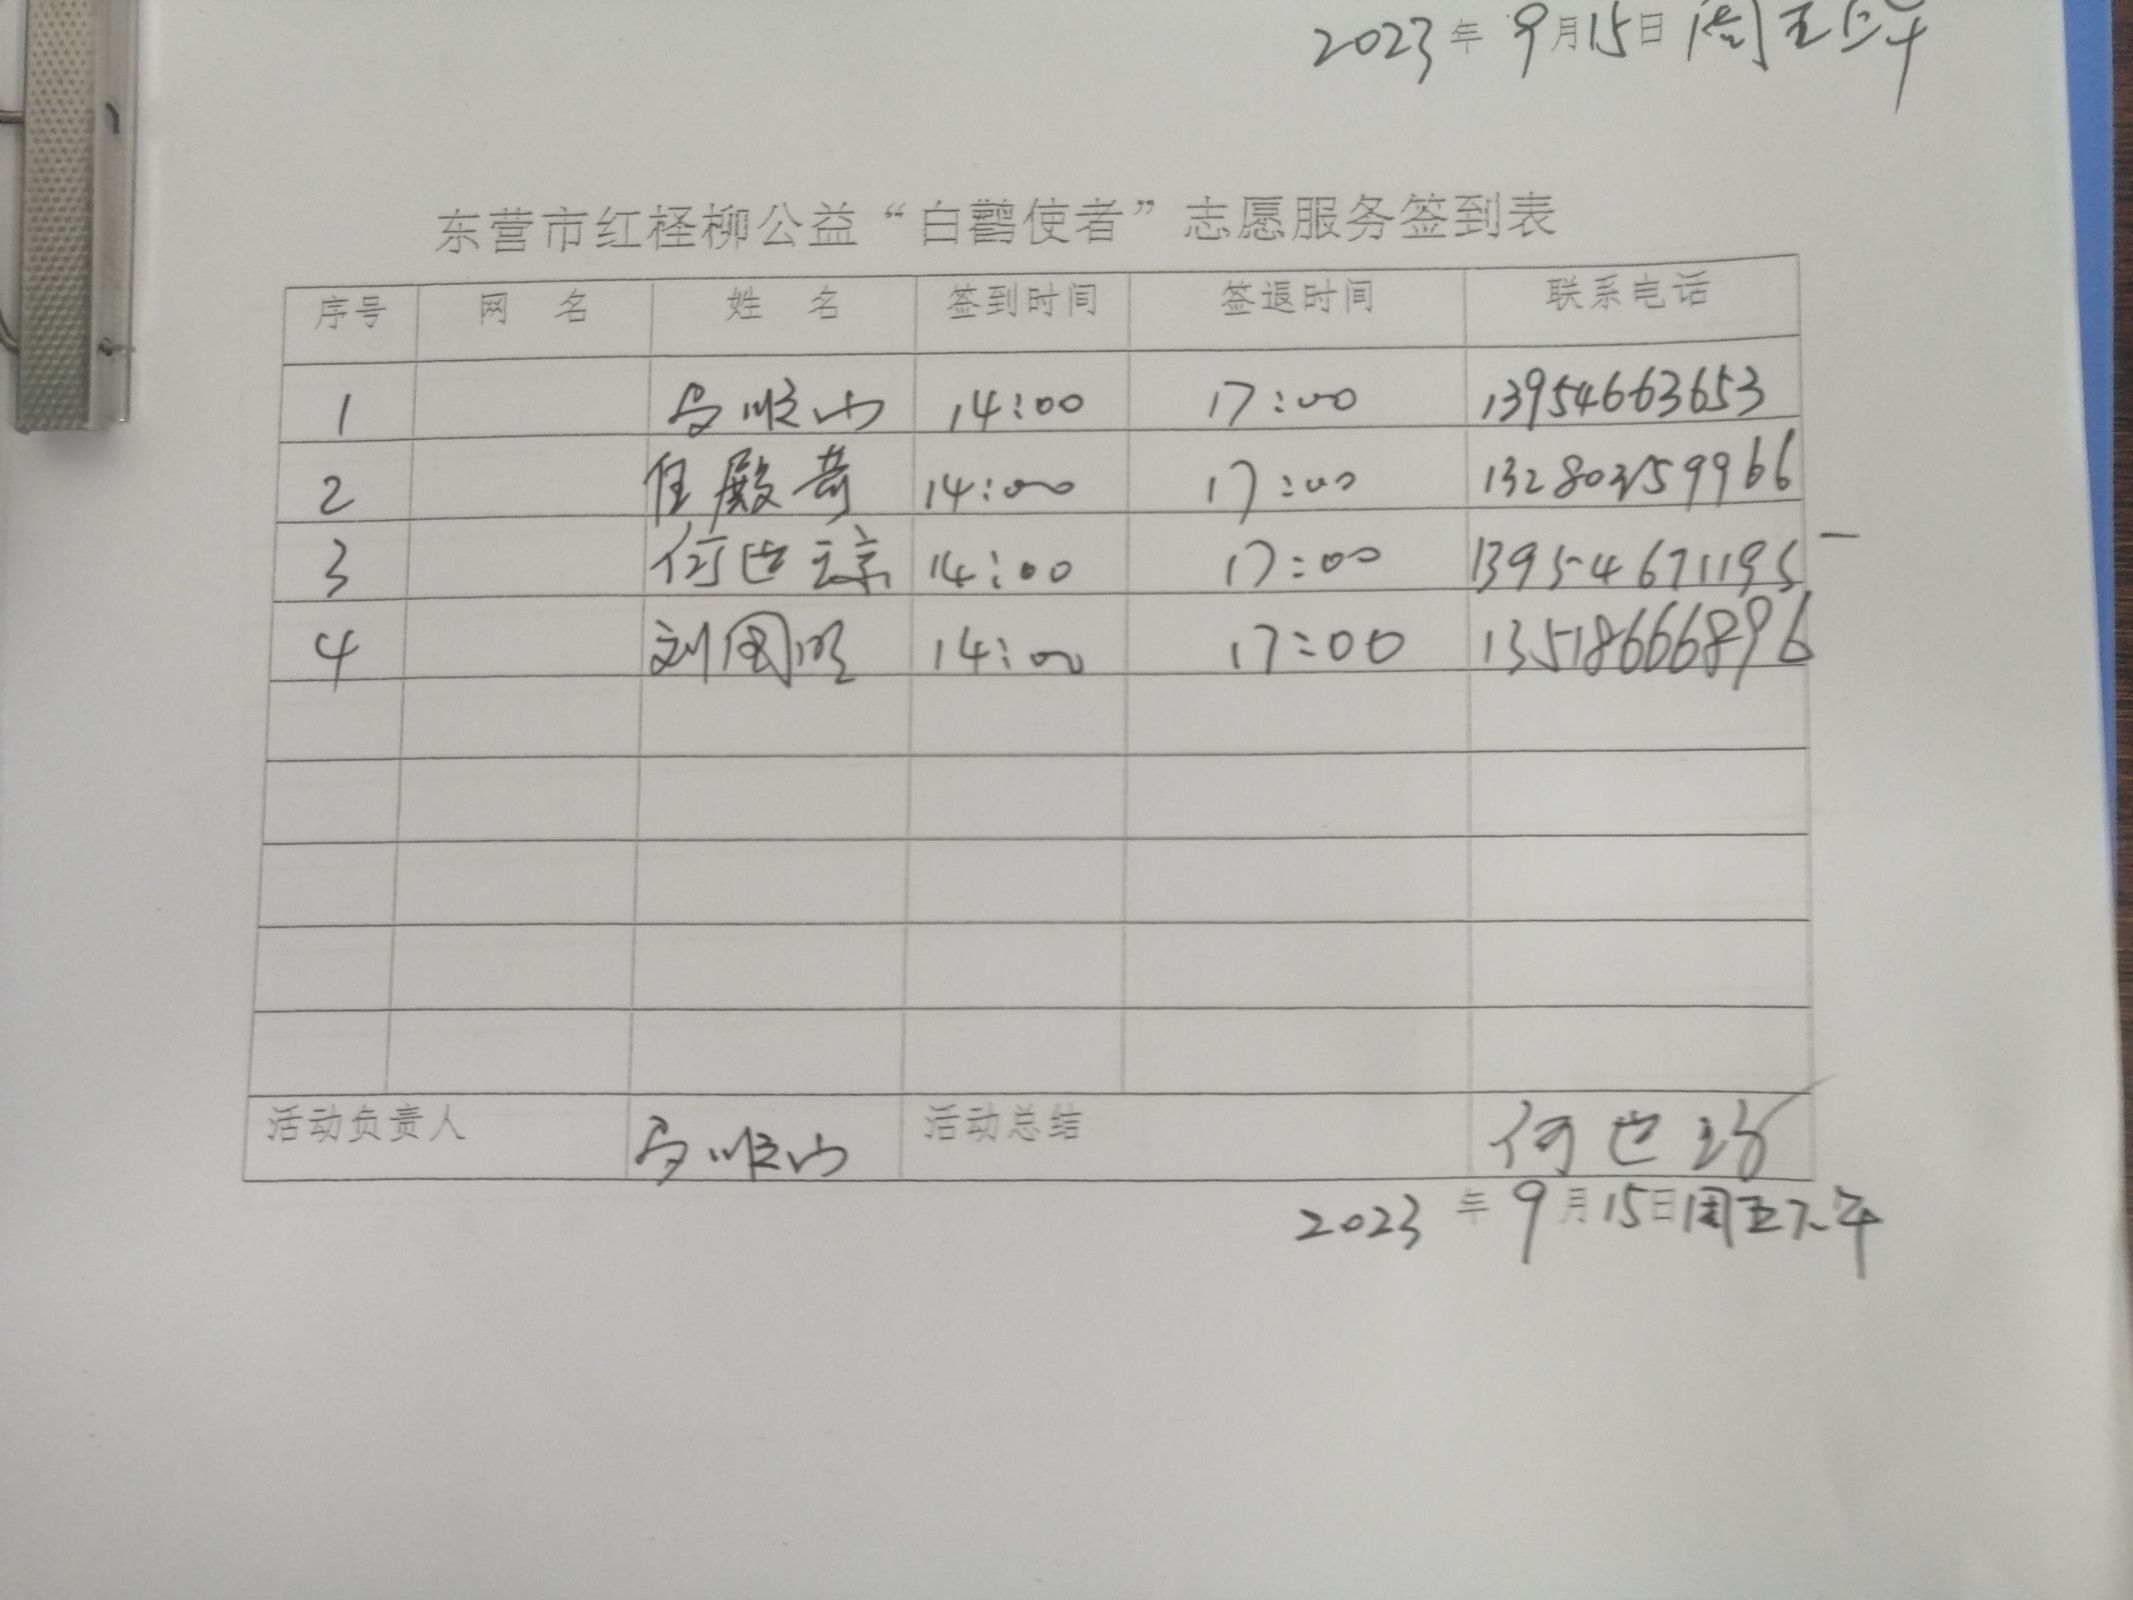 2023年9月15日周五上午
东营市红柽柳公益“白鹳使者”志愿服务签到表
序号 网 名 姓 名 签到时间 签退时间 联系电话
1 马顺山 14:00 17:00 13954663653
2 任殿奇 14:00 17:00 132803259966
3 何世琼 14:00 17:00 13954671195
4 刘国明 14:00 17:00 13518666896
活动负责人 马顺山 活动总结 何世
2023年9月15日周五下午